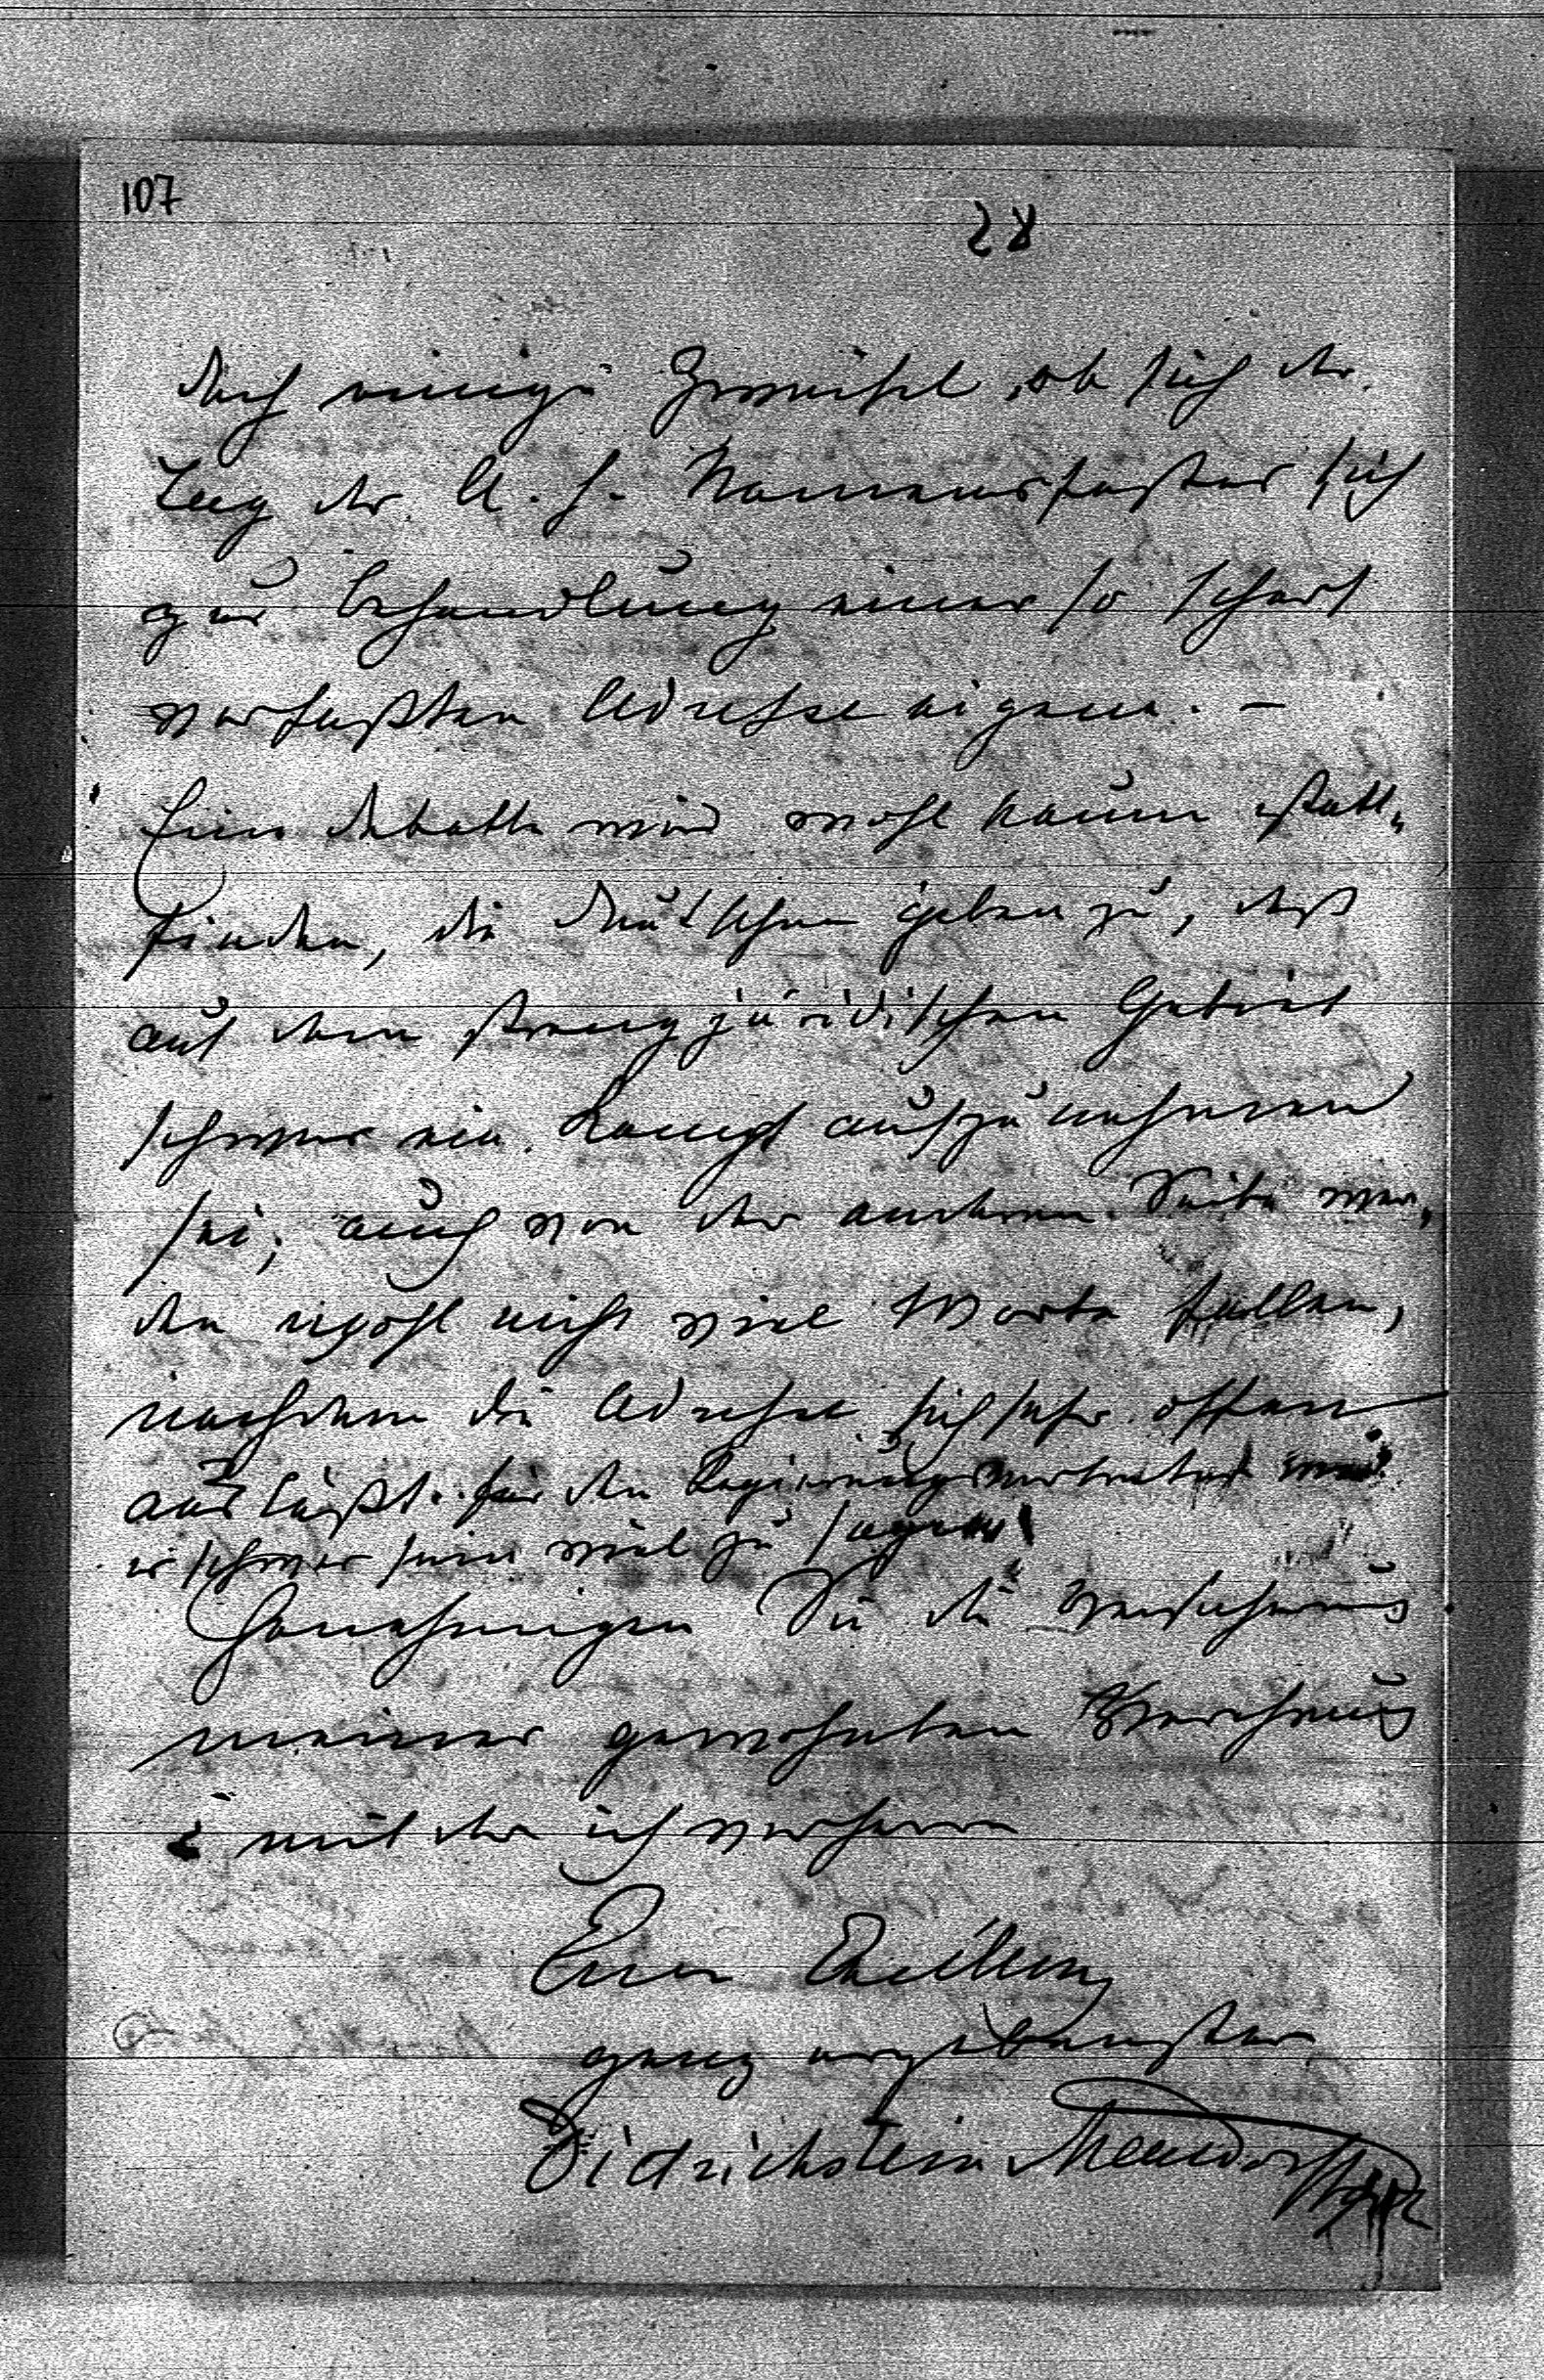 107
28
doch einige Zweifel, ob sich der
Tag des A. h. Namensfestes sich
zur Behandlung einer so scharf
verfaßten Adresse eigene. –
Eine Debatte wird wohl kaum statt„
finden, die Deutschen geben zu, daß
auf dem streng juridischen Gebiet
schwer ein Kampf aufzunehmen
sei; auch von der anderen Seite wer„
den wohl nicht viel Worte fallen,
nachdem die Adresse sich sehr offen
ausläßt. für den Regierungsvertreter wird
es schwer sein viel zu sagen!
Genehmigen Sie die Versicherung
meiner gewohnten Verehrung
mit der ich verharre
Euer Excellenz
ganz ergebenster
Dietrichstein Mensdorff